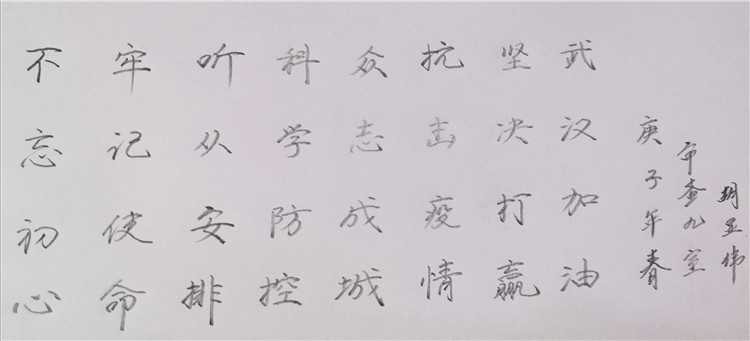 不忘初心
牢记使命
听从安排
科学防控
众志成城
抗击疫情
坚决打赢
武汉加油
庚子年春
审查九室
胡亚伟